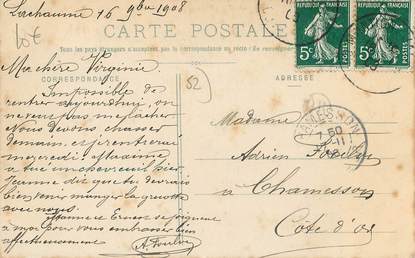 Larchaume 16 9bre 1908
CARTE POSTALE
Tous les pays étrangers n'acceptent pas la correspondance au recto
CORRESPONDANCE
ADRESSE
Ma chère Virginie
Impossible de
rentrer aujourd'hui, on
ne veut pas me lâcher
Nous devons chasser
demain, et je rentrerai
mercredi. Maxime
a tué un chevreuil hier
Jeanne dit que tu devrais
bien venir manger la
avec nous.
Jeanne et Ernest se joignent
à moi pour vous embrasser bien
affectueusement
52
Madame
Adrien
à Chamesson
Côte d'Or
REPUBLIQUE FRANÇAISE
5c
POSTES
REPUBLIQUE FRANÇAISE
5c
POSTES